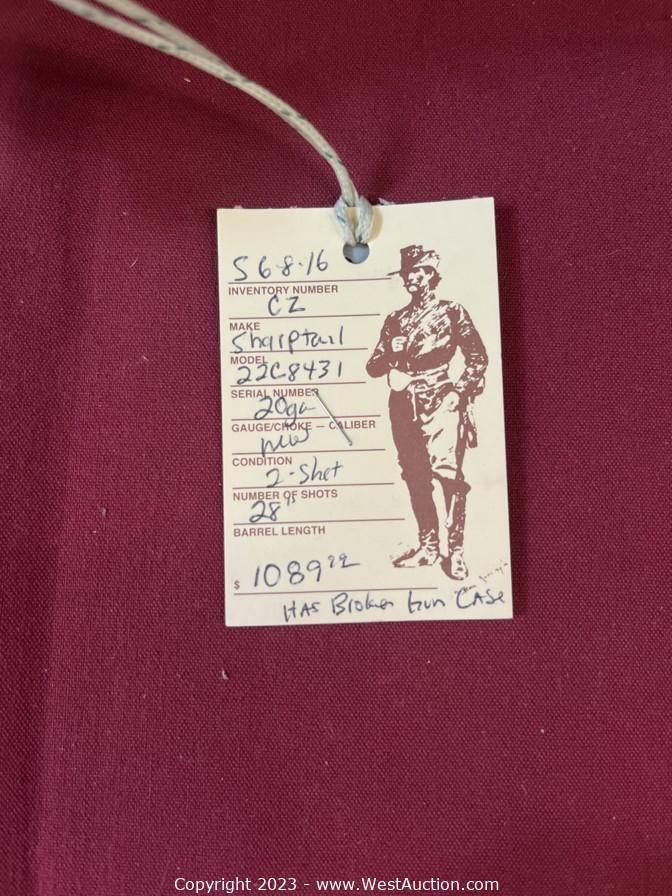 S 6-8-16
INVENTORY NUMBER
CZ
MAKE
Sharptail
MODEL
22C8431
SERIAL NUMBER
20ga
GAUGE/CHOKE — CALIBER
new
CONDITION
2-Shot
NUMBER OF SHOTS
28"
BARREL LENGTH
$ 1089
HAS Broken Gun CASE
Copyright 2023 - www.WestAuction.com